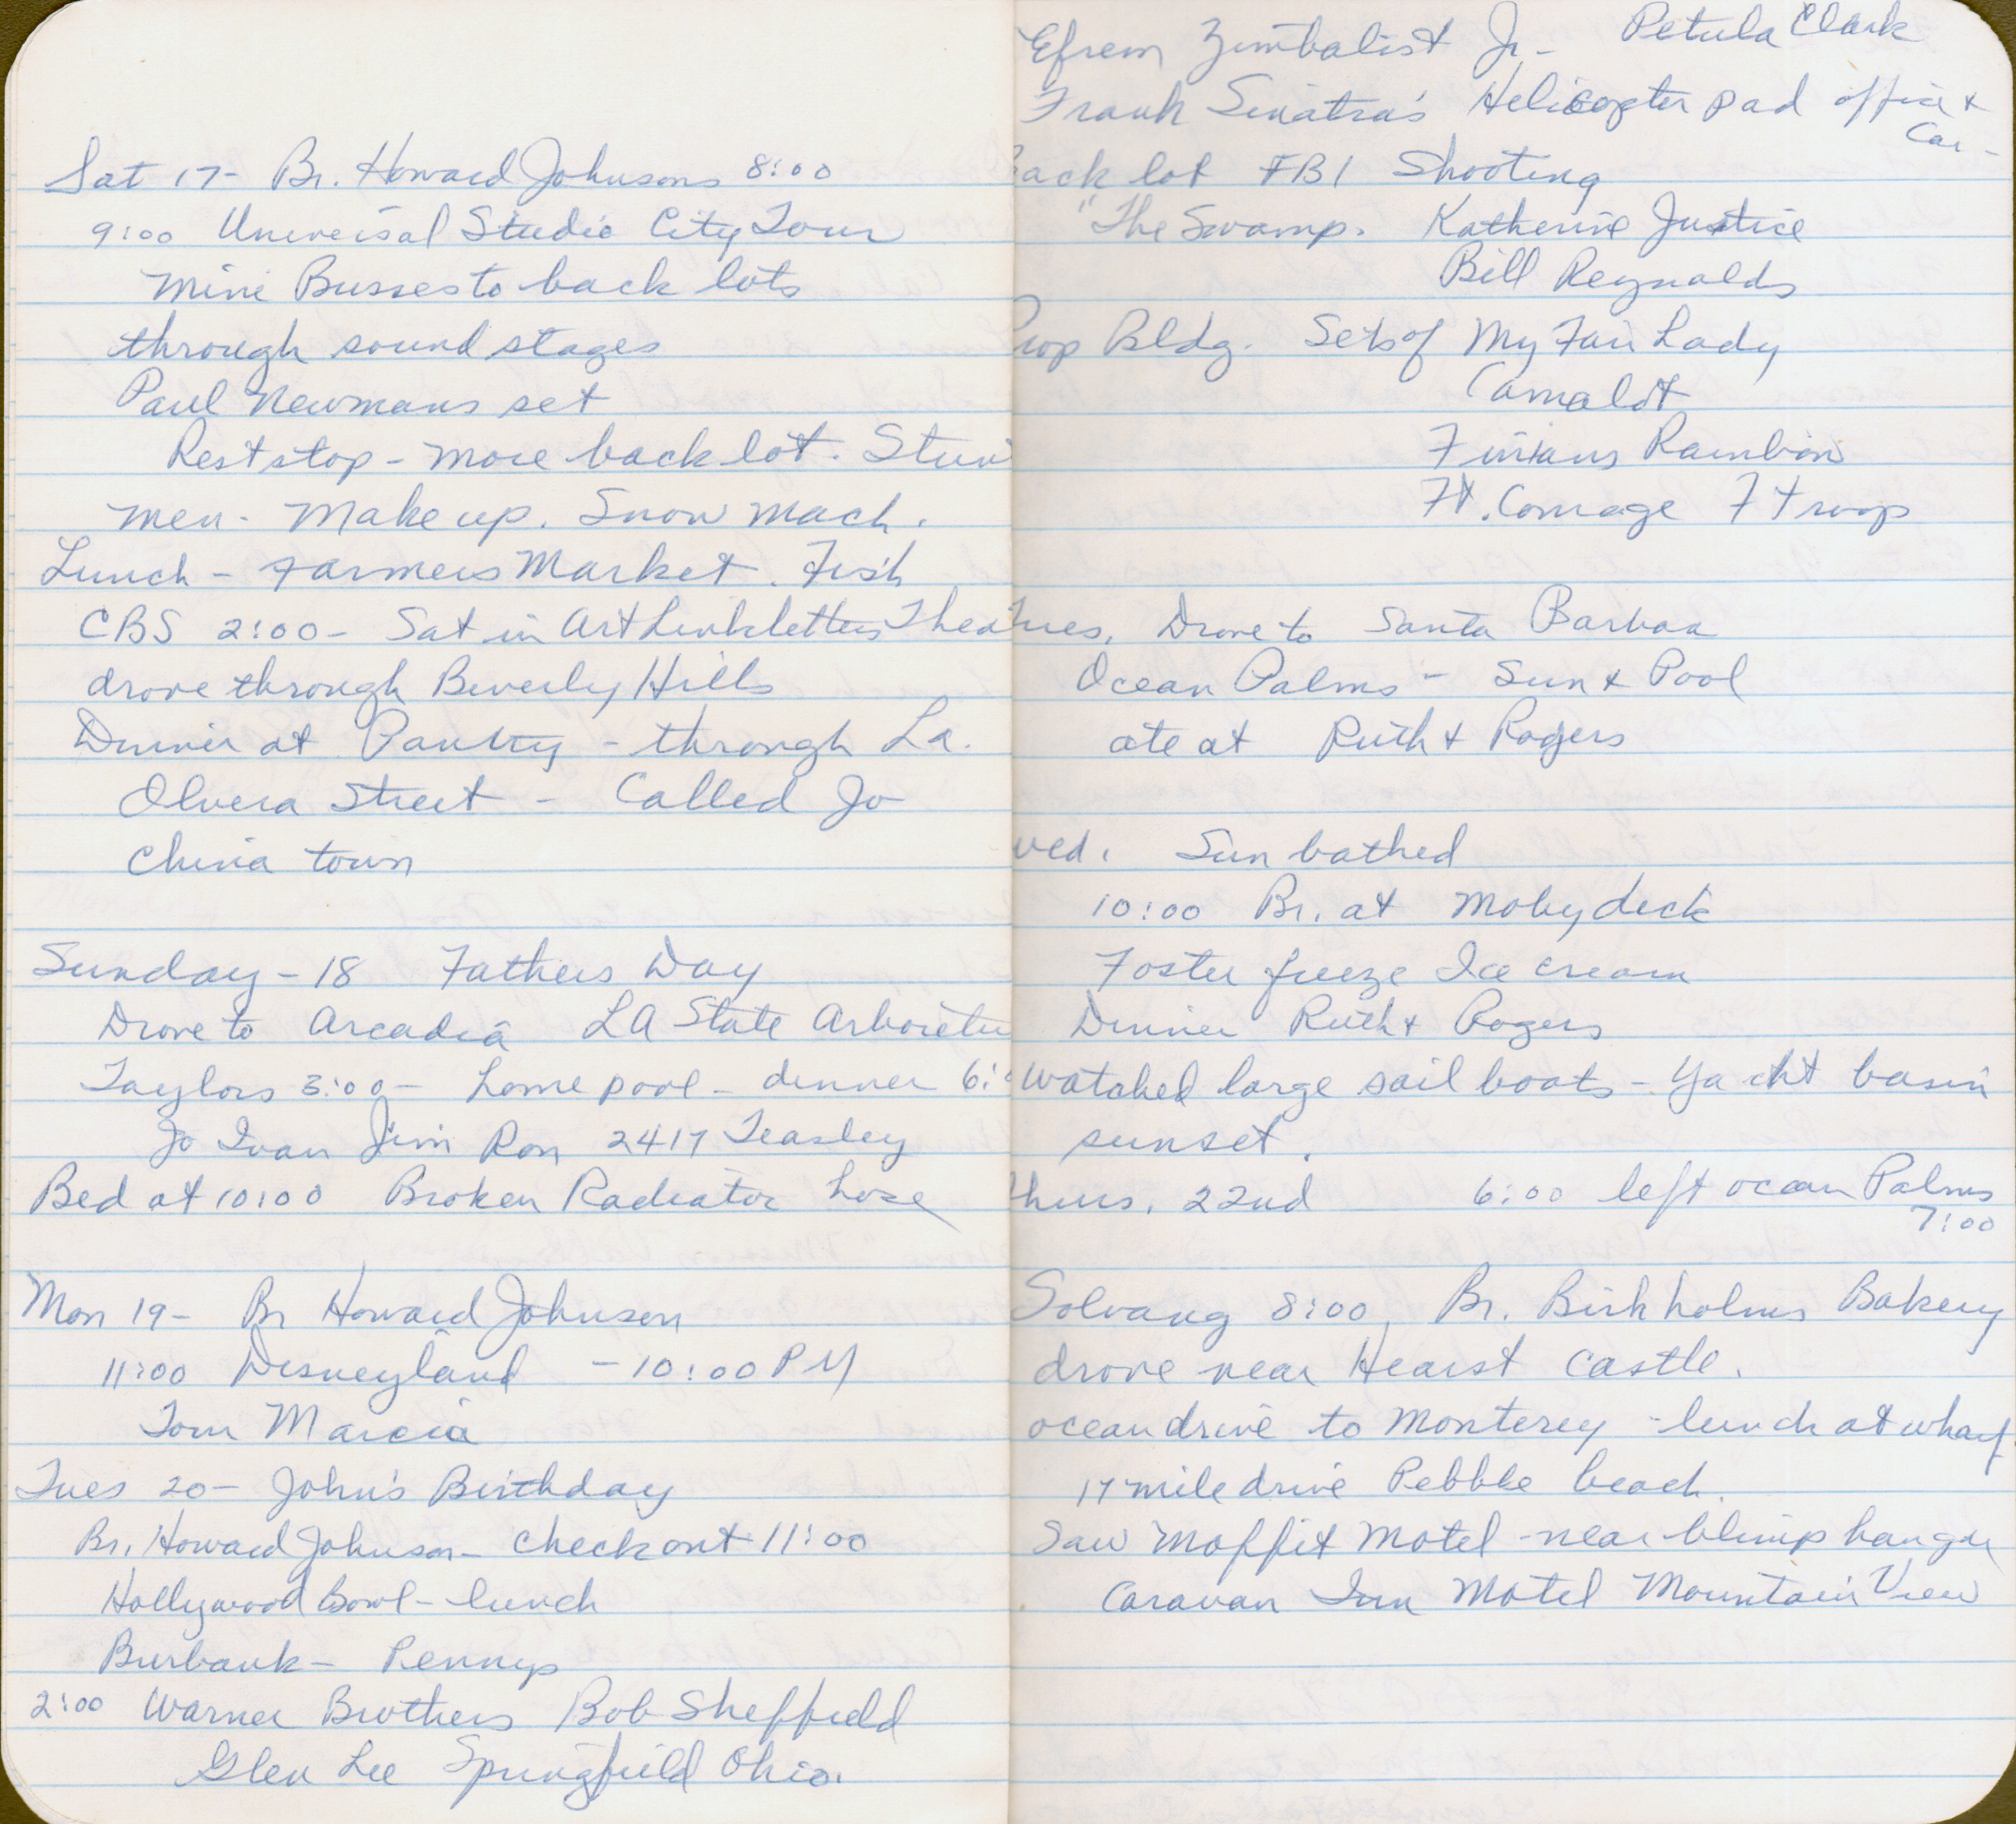 Sat 17- Br. Howard Johnsons 8:00
9:00 Universal Studio City Tour
Mini Busses to back lots
through sound stages
Paul Newmans set
Rest stop - More back lot. Stun
men - Make up. Snow Mach.
Lunch - Farmers Market. Fish
CBS 2:00 - Sat in Art Linkletters Thea
drove through Beverly Hills
Dinner at Pantry - through La.
Olvera Street - Called Jo
China town
Sunday - 18 Fathers Day
Drove to Arcadia LA State Arboretu
Taylors 3:00 - home pool - dinner 6:0
Jo Ivan Jim Ron 2417 Teasley
Bed at 10:00 Broken Radiator hose
Mon 19- Br Howard Johnson
11:00 Disneyland - 10:00 PM
Tom Marcia
Tues 20- John's Birthday
Br. Howard Johnson - check out 11:00
Hollywood Bowl - lunch
Burbank - Pennys
2:00 Warner Brothers Bob Sheffield
Glen Lee Springfield Ohio.
Efrem Zimbalist Jr - Petula Clark
Frank Sinatra's Helicopter pad office &
Car -
Back lot FBI Shooting
"The Swamp. Katherine Justice
Bill Reynolds
Prop Bldg. Sets of My Fair Lady
Camalot
Finians Rainbow
Ft. Comage F Troop
Tues. Drove to Santa Barbaa
Ocean Palms - Sun & Pool
ate at Ruth & Rogers
Wed. Sun bathed
10:00 Br. at Moby dick
Foster freeze Ice cream
Dinner Ruth & Rogers
Watched large sail boats - Yacht basin
sunset.
Thurs. 22nd 6:00 left ocean Palms
7:00
Solvang 8:00, Br. Birkholms Bakery
drove near Hearst Castle.
ocean drive to Monterey - lunch at wharf
17 mile drive Pebble beach.
Saw Moffit Motel - near blimp hanger
Caravan Inn Motel Mountain View